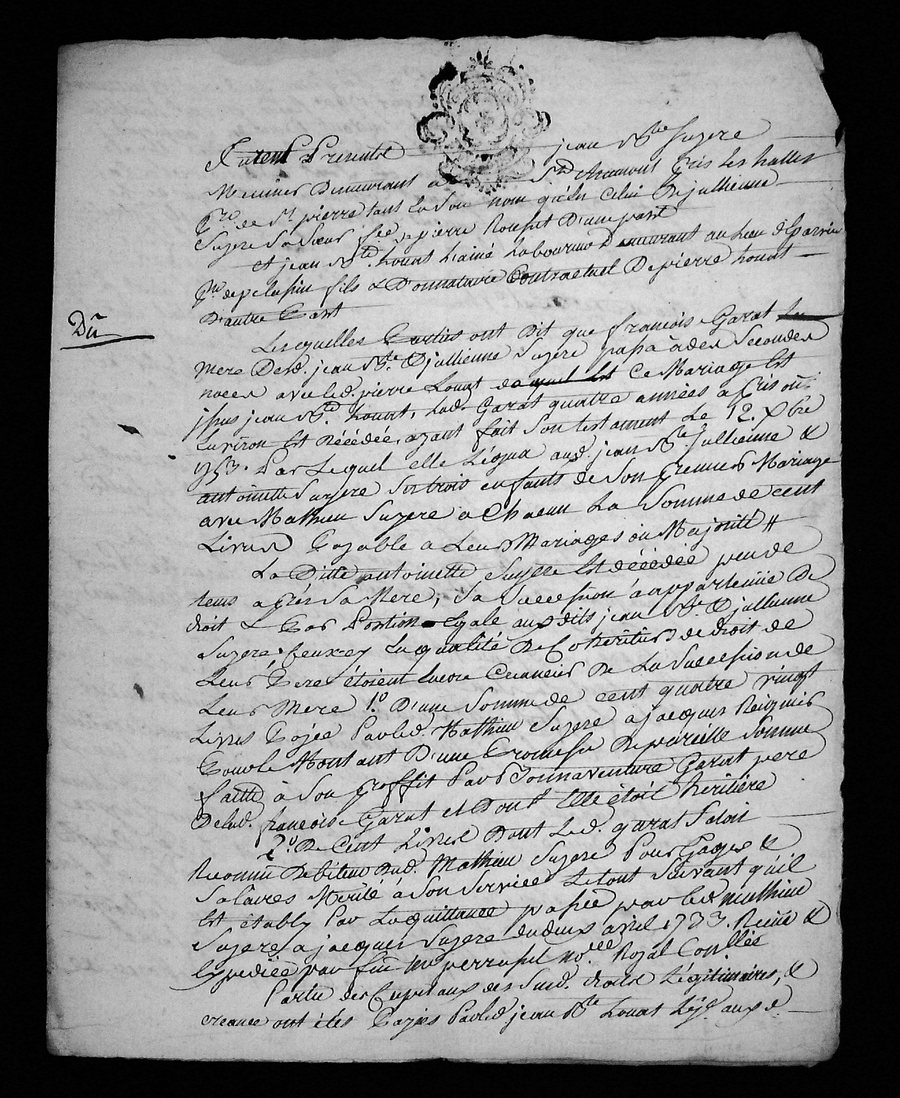 furent Presents jean Bte Suzere
Menuisier Demeurant a St Chamond les halles
De St pierre tant en Son nom qu'en Celui De jullienne
Suzere Sa Soeur fe de pierre D'une part
Et jean Bte Louat Laîné Laboureur Demeurant au Lieu de
fils & Donnataire Contractuel De pierre Louat
D'autre Part
Du
Lesquelles Parties ont Dit que françoise Garat
mere Desd. jean Bte & jullienne Suzere passa à des Secondes
noces avec led. pierre Louat De Ce Mariage Est
jssus jean Bte Louat, Lad. Garat quatre années après ou
Environ Est décédée, ayant fait Son testament Le 12. Xbre
1753. Par Lequel elle Legua aud. jean Bte Jullienne &
antoinette Suzere Ses trois enfants de Son Premier Mariage
avec Mathieu Suzere a Chacun La Somme de cent
Livres Payable a Leurs Mariages ou Majorité
La Ditte antoinette Suzere Est décédée peu de
tems après Sa Mere, Sa Succession a appartenüe De
droit & Par Portion Egale auxdits jean Bte & jullienne
Suzere, Ceux-cy En qualité De Coheritiers de droit de
Leurs Pere étoient Encore Creanciers De La Succession de
Leurs Mere 1° D'une Somme de cent quatre vingt
Livres Payée Par led. Mathieu Suzere a jacques
Pour le Montant D'une Promesse De pareille Somme
faitte à Son Proffit Par Bonnaventure Garat pere
De lad. françoise Garat et Dont Elle étoit Heritière
2° De Cent Livres Dont Led. garat S'étoit
Reconnu Debiteur Dud. Mathieu Suzere Pour Gages &
Salaires Merité à Son Service Le tout Suivant qu'il
Est Etably Par La quittance passée par led. mathieu
Suzere a jacques Suzere du deux avril 1733. Reçüe &
Expediée par feu Me nore Royal
Partie des Capitaux des Susd. droits Legitimaires, &
creance ont étés Payés Par led. jean Bte Louat auxd.